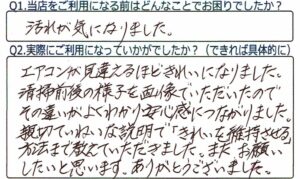 Q1.当店をご利用になる前はどんなことでお困りでしたか?
汚れが気になりました。
Q2.実際にご利用になっていかがでしたか?(できれば具体的に)
エアコンが見違えるほどきれいになりました。
清掃前後の様子を画像でいただいたので
その違いがよくわかり安心感につながりました。
親切でていねいな説明で「きれいを維持させる」
方法まで教えていただきました。またお願い
したいと思います。ありがとうございました。